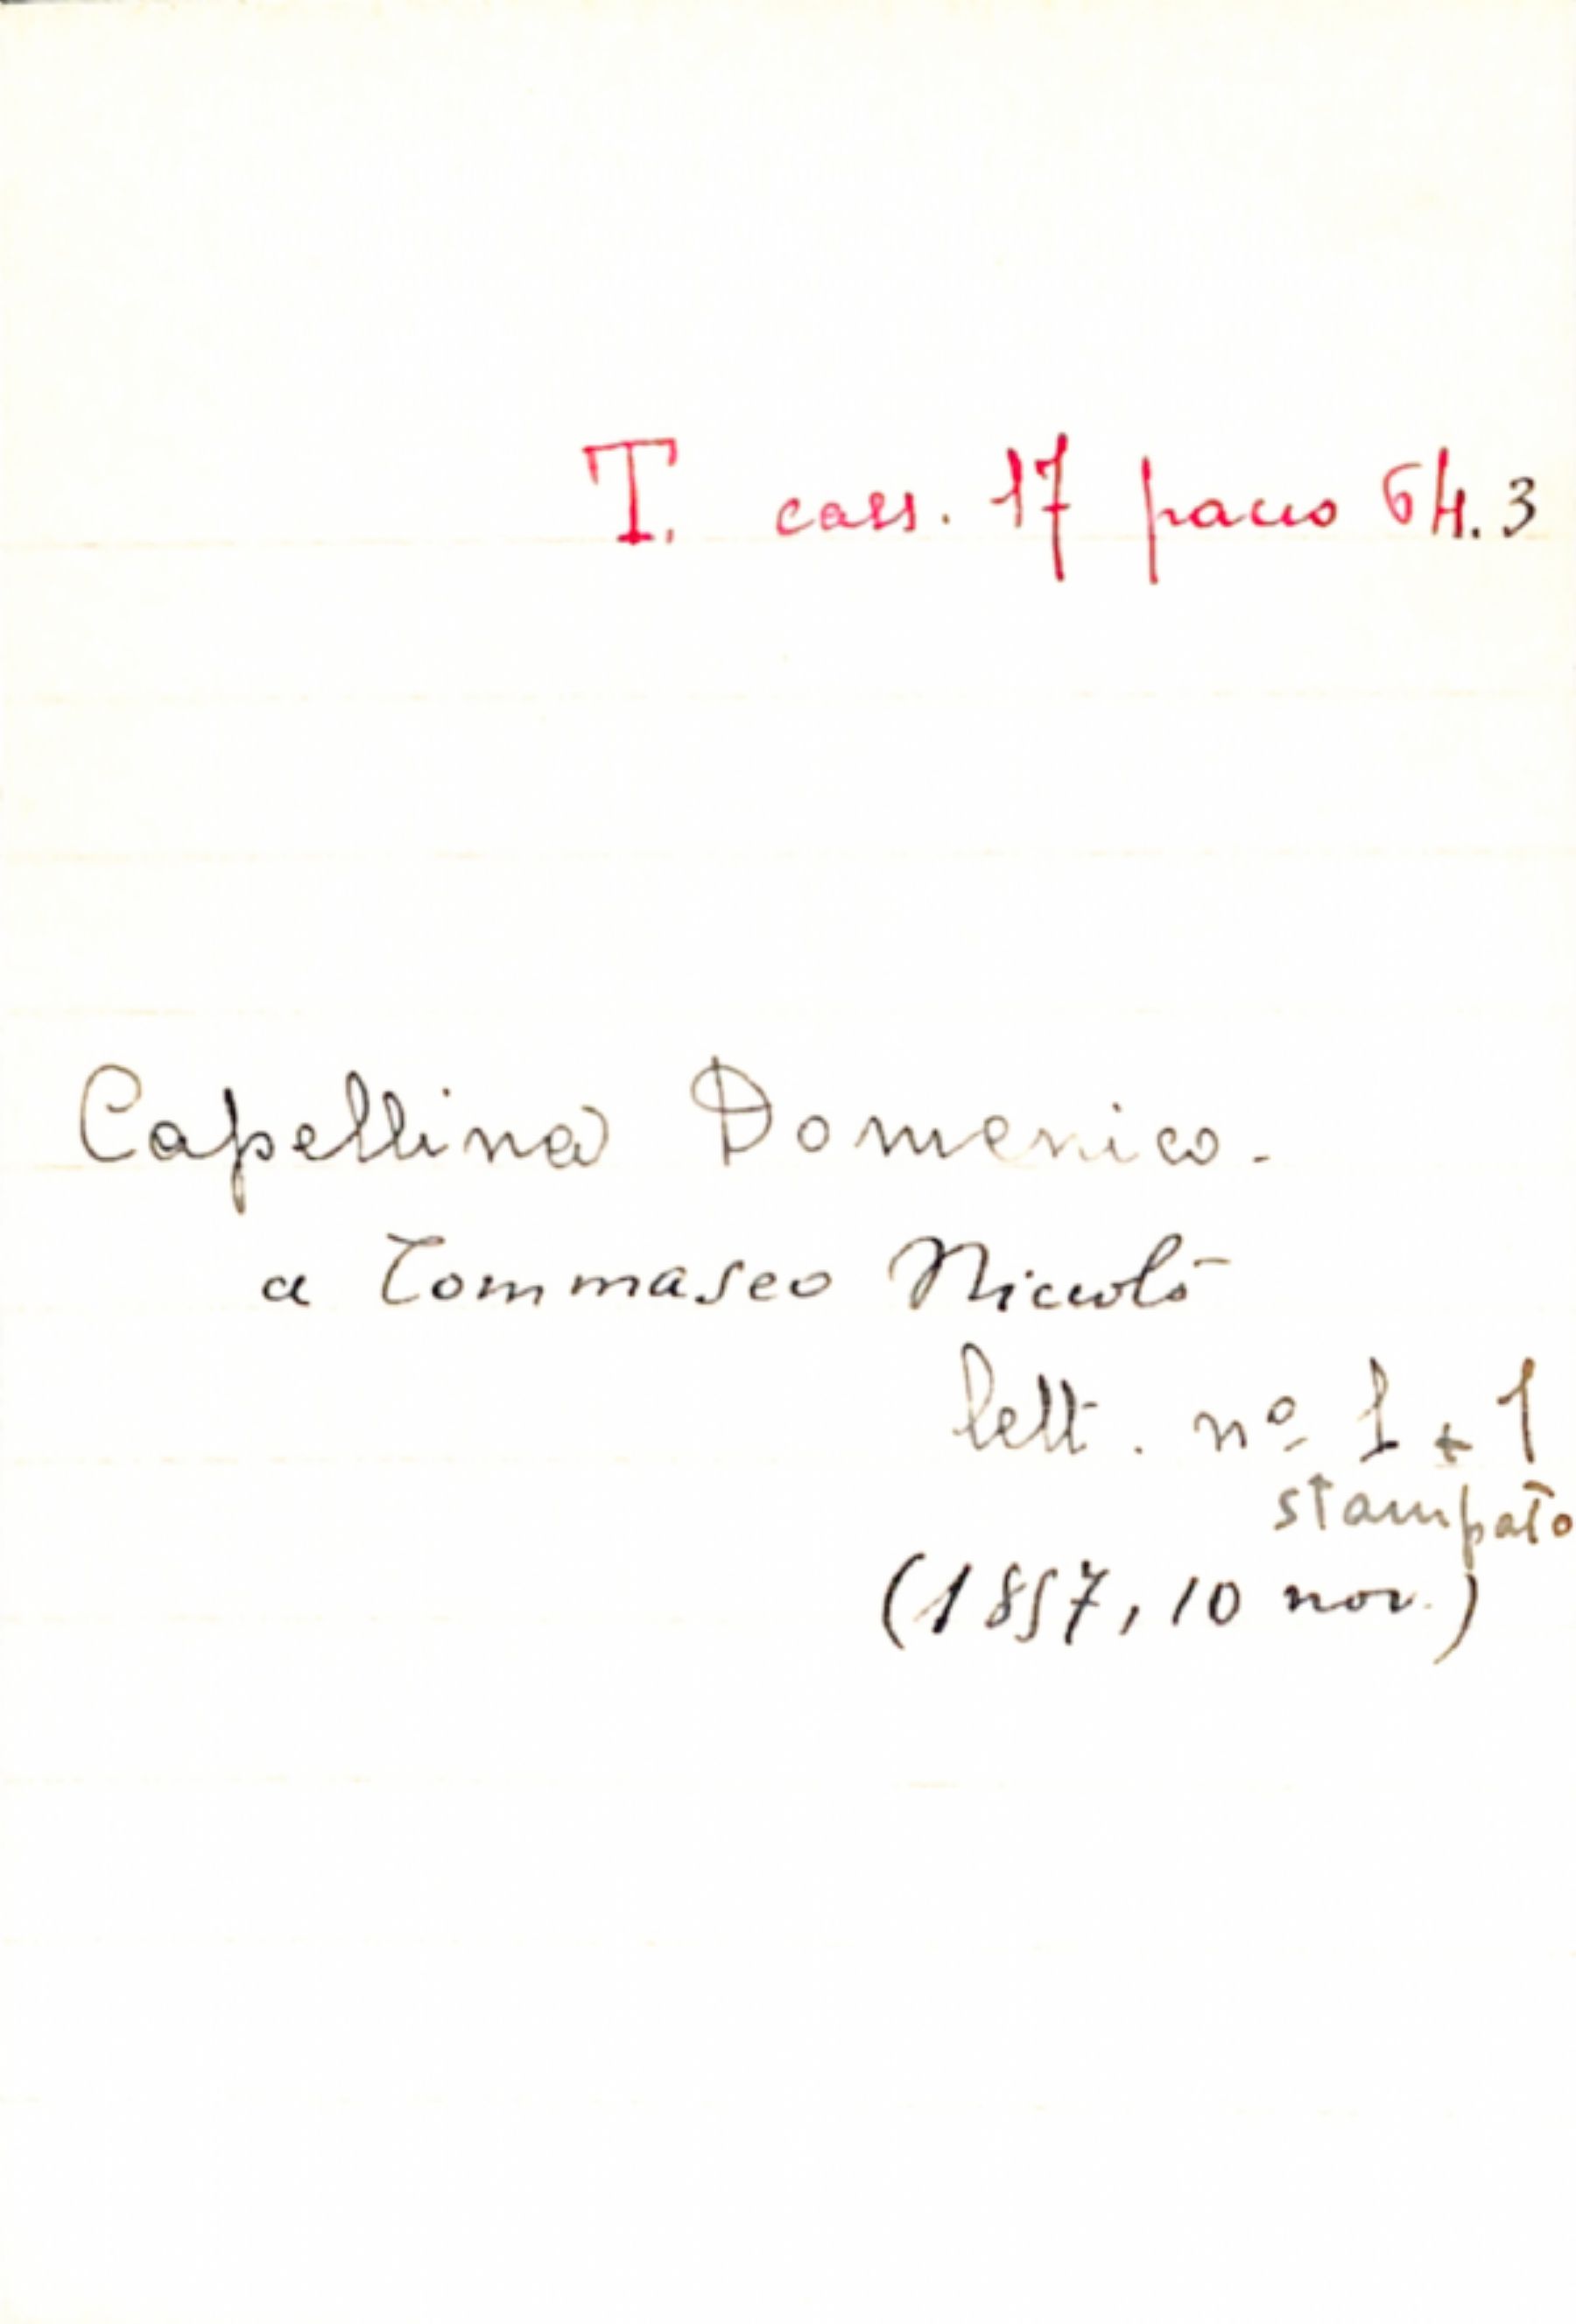 T. cass. 17 pacco 64.3
Capellina Domenico.
a Tommaseo Niccolò
lett. nº 1 + 1
stampato
(1857, 10 nov.)